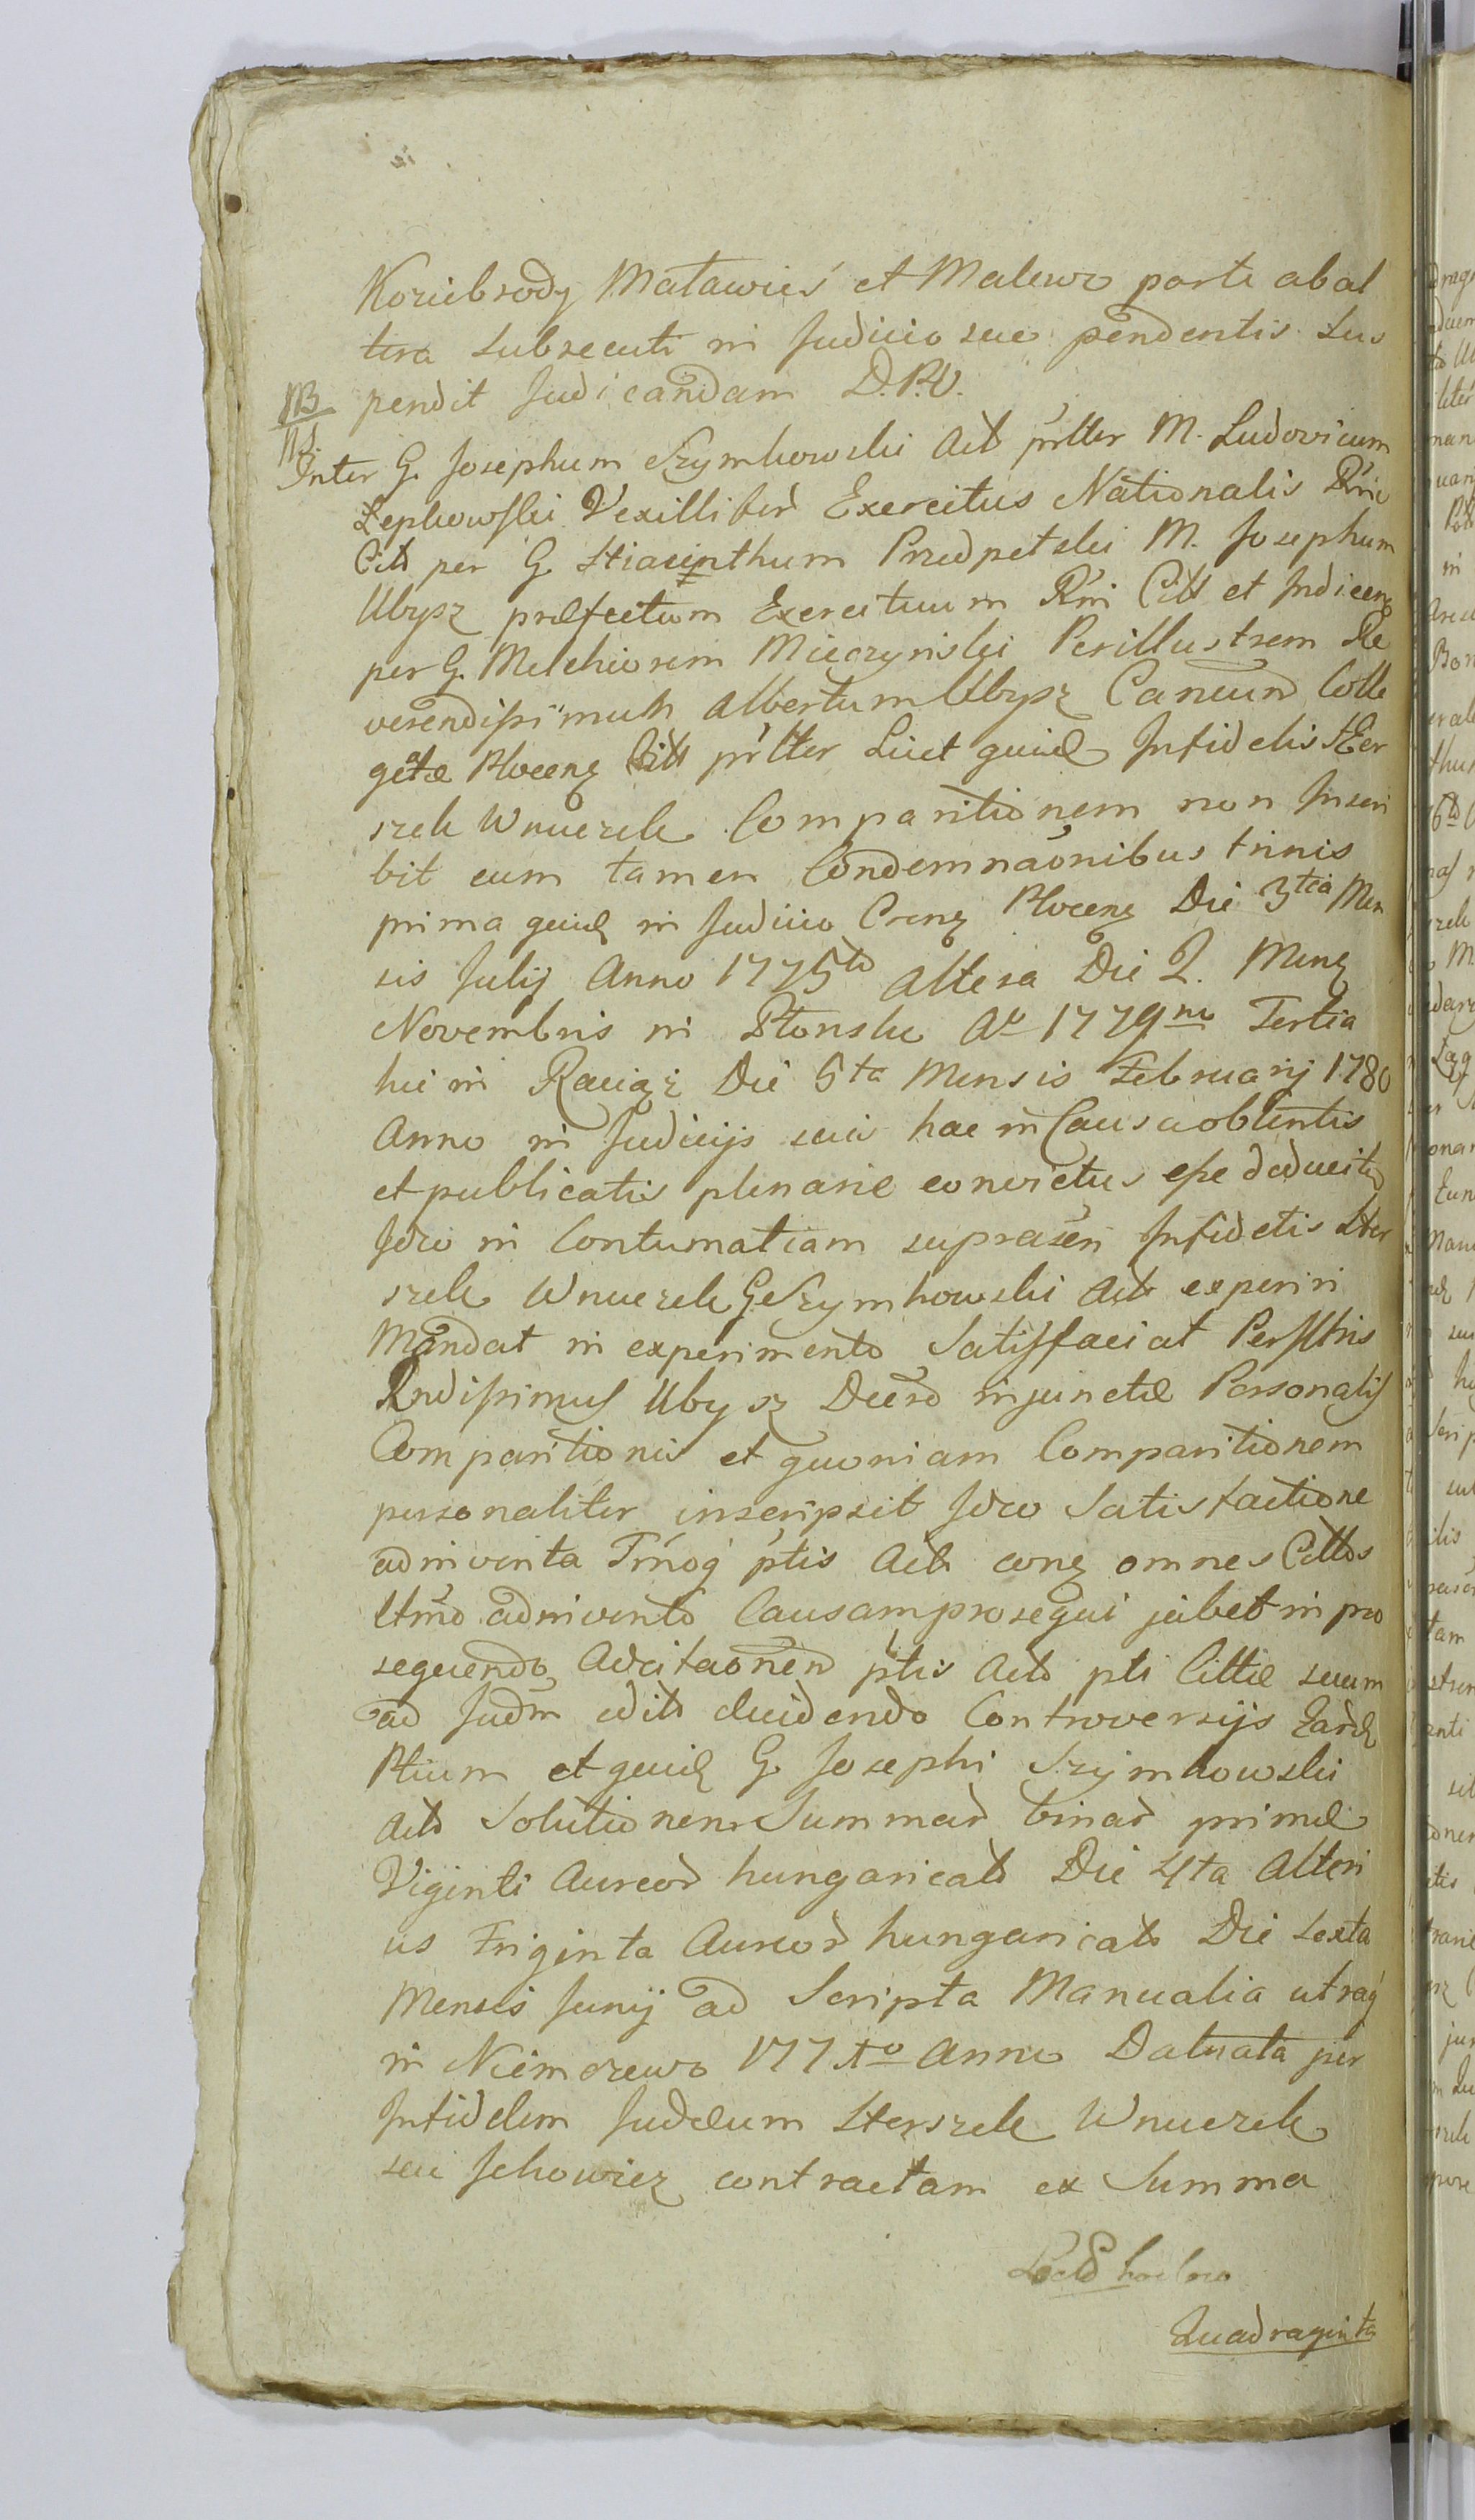 Koziebrody Maławieś et Malewo parte ab al
tera subsecuti in Judicio suo pendentis sus
pendit judicandam D.P.V.
NB
Inter G. Josephum Szymkowski Act prlter M. Ludovicum
Lepkowski Vexilliferd Exercitus Nationalis Rni
Citt per G. Hiacinthum Przedpełski M. Josephum
Ubysz præfectum Exercituum Rni Citt et Indicen
per G. Melchiorem Mięczyński Perillustrem Re
verendissimum Albertum Ubysz Canoun Colle
getæ Plocenę Citt prlter Licet quid Infidelis Her
szek Wnuczek Comparitionem non Inscri
bit cum tamen Condemnaonibus trinis
prima quid in Judicio Crenę Plocenę Die 3tia Men
sis Julij Anno 1775to altera Die 2. Menę
Novembris in Płonsk Ao 1779no Tertia
hic in Raciąż Die 5ta Mensis Februarij 1780
Anno in Judicijs suis hac in Causa obtentis
et publicatis plenarie convictus esse deducitd
Idcio in Contumatiam suprascri Infidelis Her
szek Wnuczek G Szymkowski Act experiri
Mandat in experimento Satisfaciat Perlltris
Rndissimus Ubysz Decreto injunctæ Personalis
Comparitionis et quoniam Comparitionem
personaliter inscripsit Idco Satisfactione
adinventa Trnoq ptis Act conę omnes Cittos
Ttrno adinvento Causam prosequi jubet in pro
sequendo Adcitaonend ptis Act pti Cittæ suum
ad Judm edit decidendo Controversijs Eard
Ptium et quid G. Josephi Szymkowski
Act Solutionem Summard binard primæ
Viginti Aureord hungaricald Die 4ta Alteri
us Triginta Aureord hungaricald Die Sexta
Mensis Junij ad Scripta Manualia utraq
in Niemczewo 177 Anno Datuata per
Infidelem Judæum Herszek Wnuczek
seu Jchowicz contractam ex Summa
Quadraginta